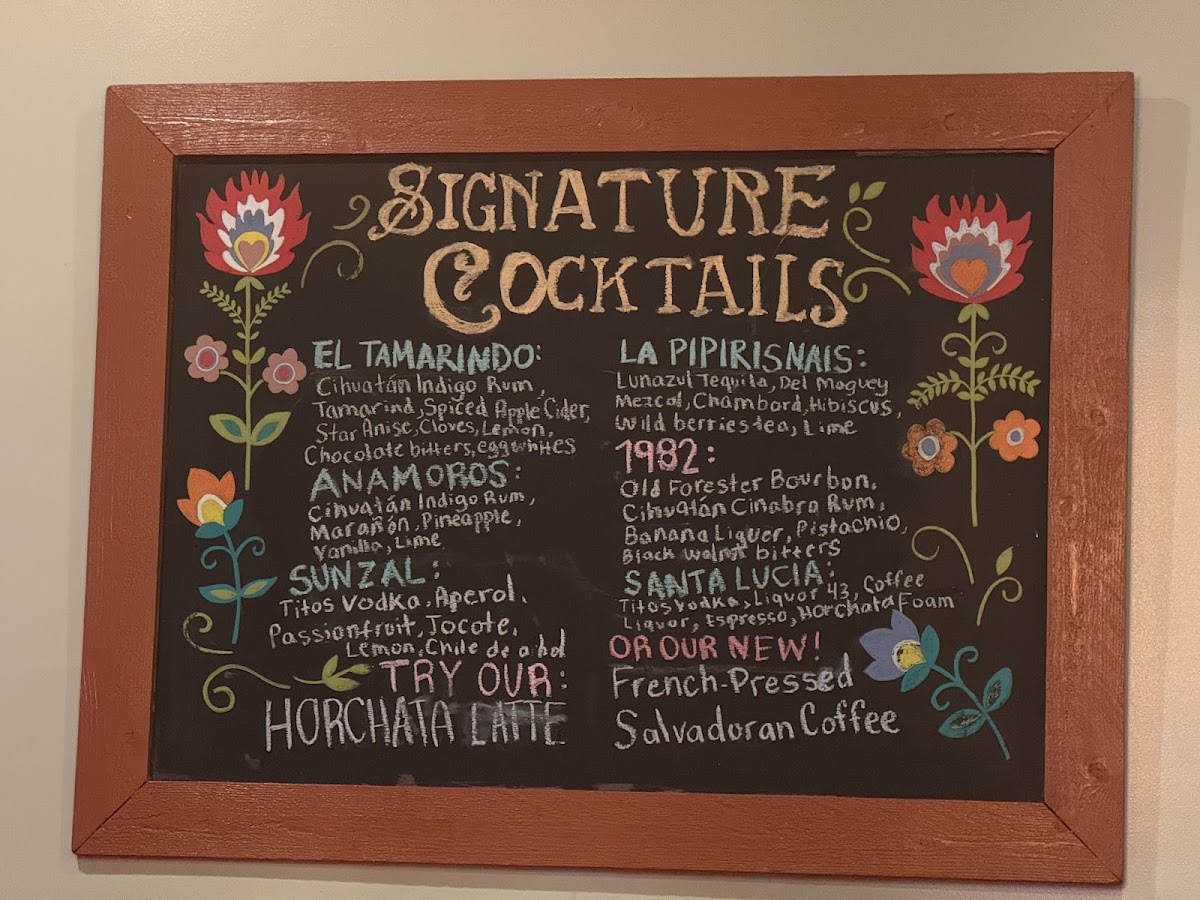 SIGNATURE
COCKTAILS
EL TAMARINDO:
Cihuatán Indigo Rum,
Tamarind, Spiced Apple Cider,
Star Anise, Cloves, Lemon,
Chocolate bitters, eggwhites
ANAMOROS:
Cihuatán Indigo Rum,
Marañón, Pineapple,
Vanilla, Lime
SUNZAL:
Titos Vodka, Aperol,
Passionfruit, Jocote,
Lemon, Chile de arbol
TRY OUR:
HORCHATA LATTE
LA PIPIRISNAIS:
Lunazul Tequila, Del Maguey
Mezcal, Chambord, Hibiscus,
Wild berries tea, Lime
1982:
Old Forester Bourbon,
Cihuatán Cinabra Rum,
Banana Liquer, Pistachio,
Black Walnut bitters
SANTA LUCIA:
Titos Vodka, Liquor 43, Coffee
Liquor, Espresso, Horchata Foam
OR OUR NEW!
French-Pressed
Salvadoran Coffee